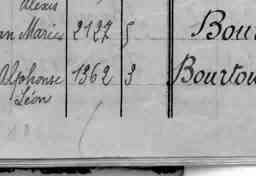 Alexis
an Marie 2127 5 Bour
Alphonse 1362 3 Bourtou
Léon